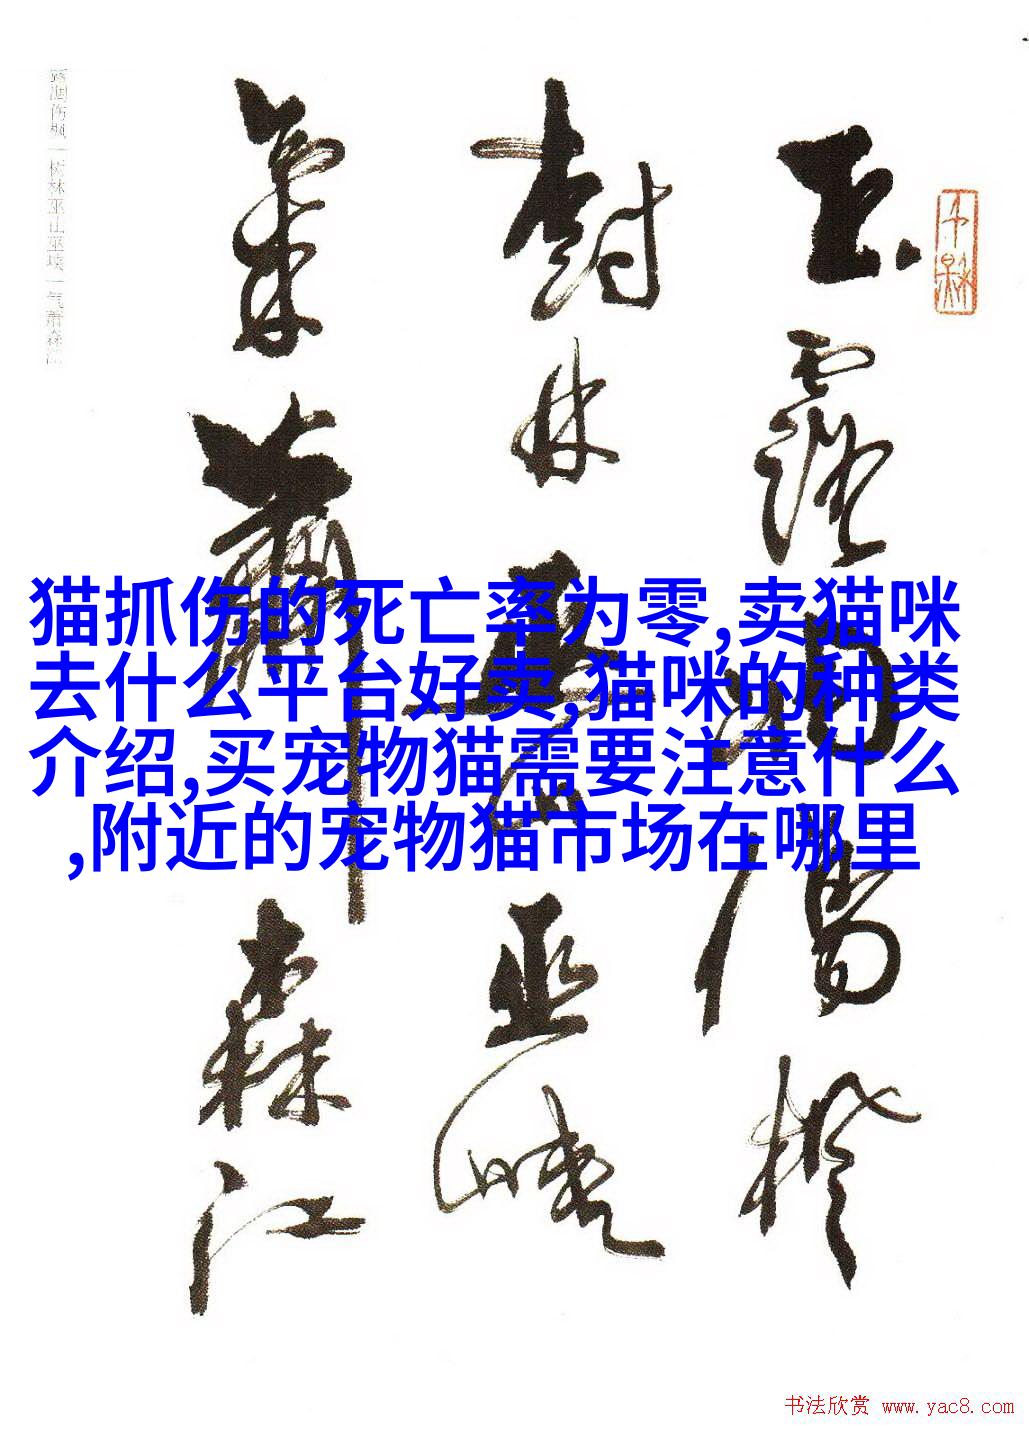 玉露凋傷楓
樹林巫山巫峽
氣蕭森江
猫抓伤的死亡率为零,卖猫咪
去什么平台好卖,猫咪的种类
介绍,买宠物猫需要注意什么
,附近的宠物猫市场在哪里
露凋伤枫一树林巫山巫峡一气萧森江
书法欣赏 www.yac8.com